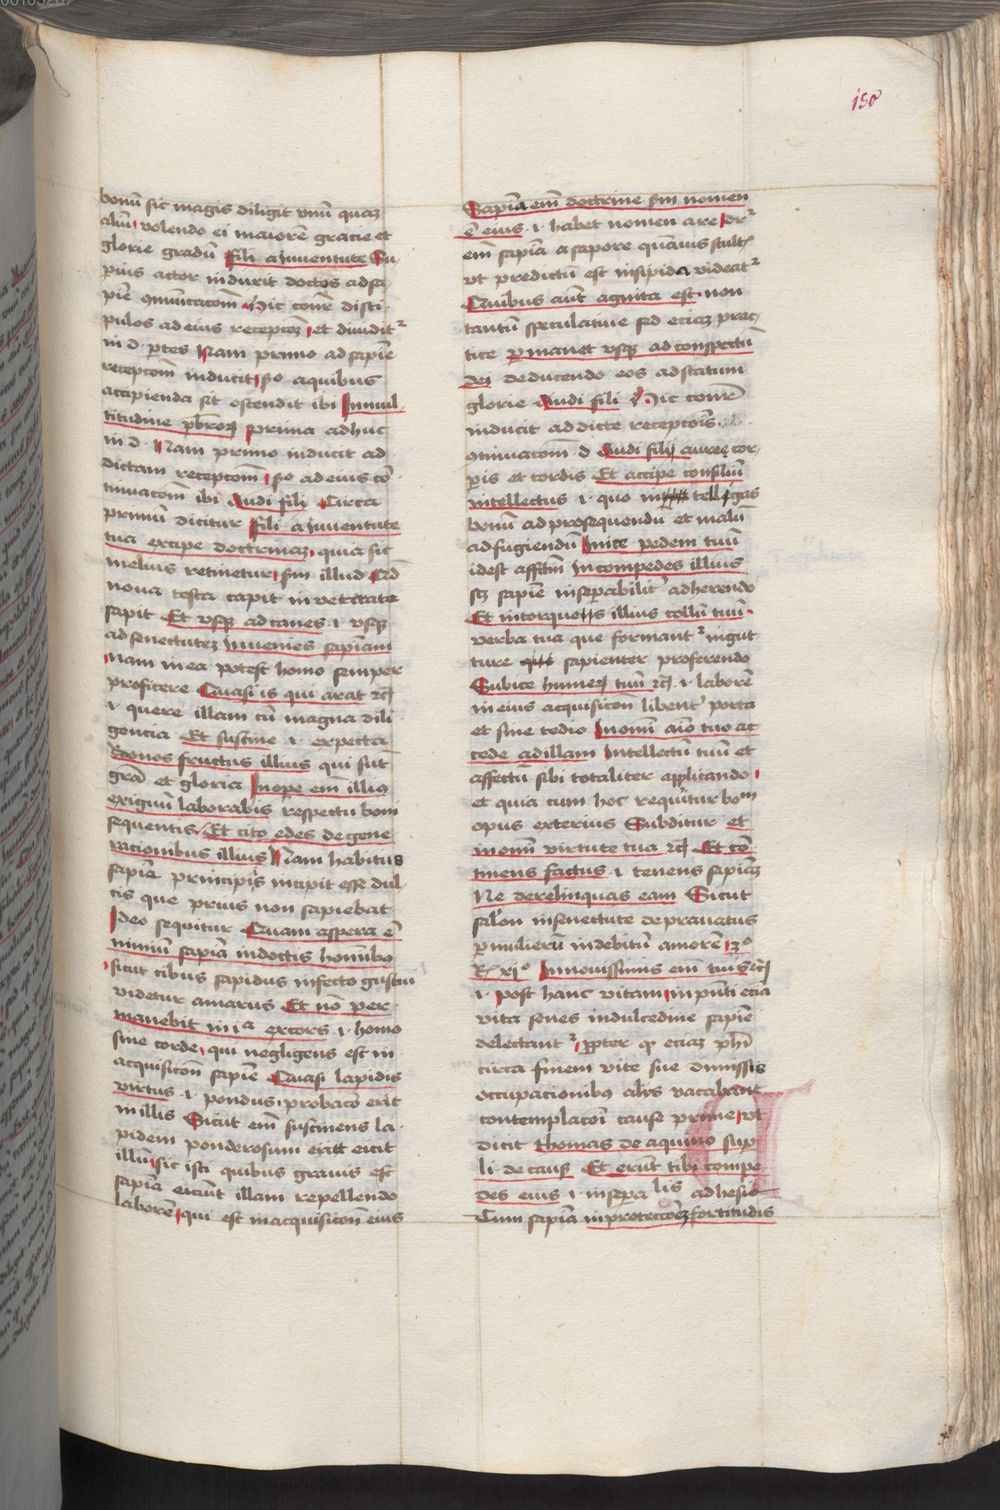 00103267
150
bonū sic magis diligit vnū quaꝫ
aliū volendo ei maiorē gratie et
glorie gradū fili a Juuentute Su
pius actor induxit doctos ad sa
pīe ↄmūicatōꝫ Hic conr̄ disci
pulos ad eius receptōꝫ et diuidit᷑
in d ꝑtes Nam primo ad sapīe
receptōm inducit / 2o a quibus
accipienda sit ostendit ibi In mul
titudine p̄bror̄ꝝ prima adhuc
in d Nam primo inducit ad
dictam receptōm / 2o ad eius cō
tinuacōm ibi Audi fili Circa
primū dicitur fili a Juuentute
tua excipe doctrinaꝫ quia sic
melius retinetur / scd̄m illud Qd̄
noua testa capit inveterata
sapit Et vsqꝫ ad canes .i. vsqꝫ
ad senectuteꝫ Inuenies sapīam
nam in ea potest homo semper
proficere Quasi is qui arat ꝛcꝫ
.i. quere illam cū magna dili
gencia Et sustine .i. expecta
Bonos fructus illius qui sūt
gr̄a et gloria In opē em̄ illiꝰ
exiguū laborabis respectu boni
sequentis Et cito edes de gene
racionibus illius Nam habitus
sapīa principijs incipit esse dul
cis que prius non sapiebat
Ideo sequitur Quam asꝑera ē
nimiū sapīa indoctis homībꝰ
sicut cibus sapidus infecto gustui
videtur amarus Et nō per
manebit in ea excors .i. homo
sine corde, qui negligens est in
acquisicōn sapīe Quasi lapidis
virtus .i. pondus probacō erit
in illis Sicut em̄ sustinens la
pidem ponderosum eicit
illū sic isti quibus grauis est
sapīa eiciūt illam repellendo
laborē qui est in acquisicōn eius
Sapīa em̄ doctrine scd̄m nomen
ē eius .i. habet nomen a re dr᷑
em̄ sapīa a sapore quāuis stult
vt predictū est insipida videat᷑
Quibus aūt agnita est non
tantū speculatiue sed eciaꝫ prac
tice ꝑmanet vsqꝫ ad conspectū
dei deducendo eos ad statum
glorie Audi fili Hic conr̄
inducit ad dicte receptōis
ↄtinuatōm d Audi fili aureꝫ cor
ꝑis et cordis Et accipe consiliū
intellectus .i. quo intelligas
bonū ad prosequendū et malū
ad fugiendū Inice pedem tuū
idest affc̄m In compedes illius
scꝫ sapīe inseꝑabilit᷑ adherendo
Et in torques illius collū tuū
verba tua que formant᷑ in gut
ture sapienter proferendo
Subice humerꝫ tuū ꝛcꝫ .i. laborē
in eius acquisicōn libent᷑ porta
et sine tedio In omī aīo tuo ac
cede ad illam Intellectū tuū et
affectū sibi totaliter applicando
et quia cum hoc requiritur bom
opus exterius Subditur et
in omī virtute tua ꝛcꝫ Et cō
tinens factus .i. tenens sapīaꝫ
Ne derelinquas eam Sicut
salōn in senectute deprauatus
ꝑ mulierū indebitū amorē 3o
Rꝫ xio In nouissimis em̄ tuis ꝛcꝫ
.i. post hanc vitam in pn̄ti eciā
vita senes in dulcedine sapīe
delectant᷑ ꝓpter qꝫ eciaꝫ ph̄i
circa finem vite sue dimissis
occupationibꝰ alijs vacabant
contemplacōi cause prime vt
dicit thomas de aquino suꝑ
li de causꝭ Et erūt tibi compe
des eius .i. insepabilis adhesio
Cum sapīa in protectōeꝫ fortitudis